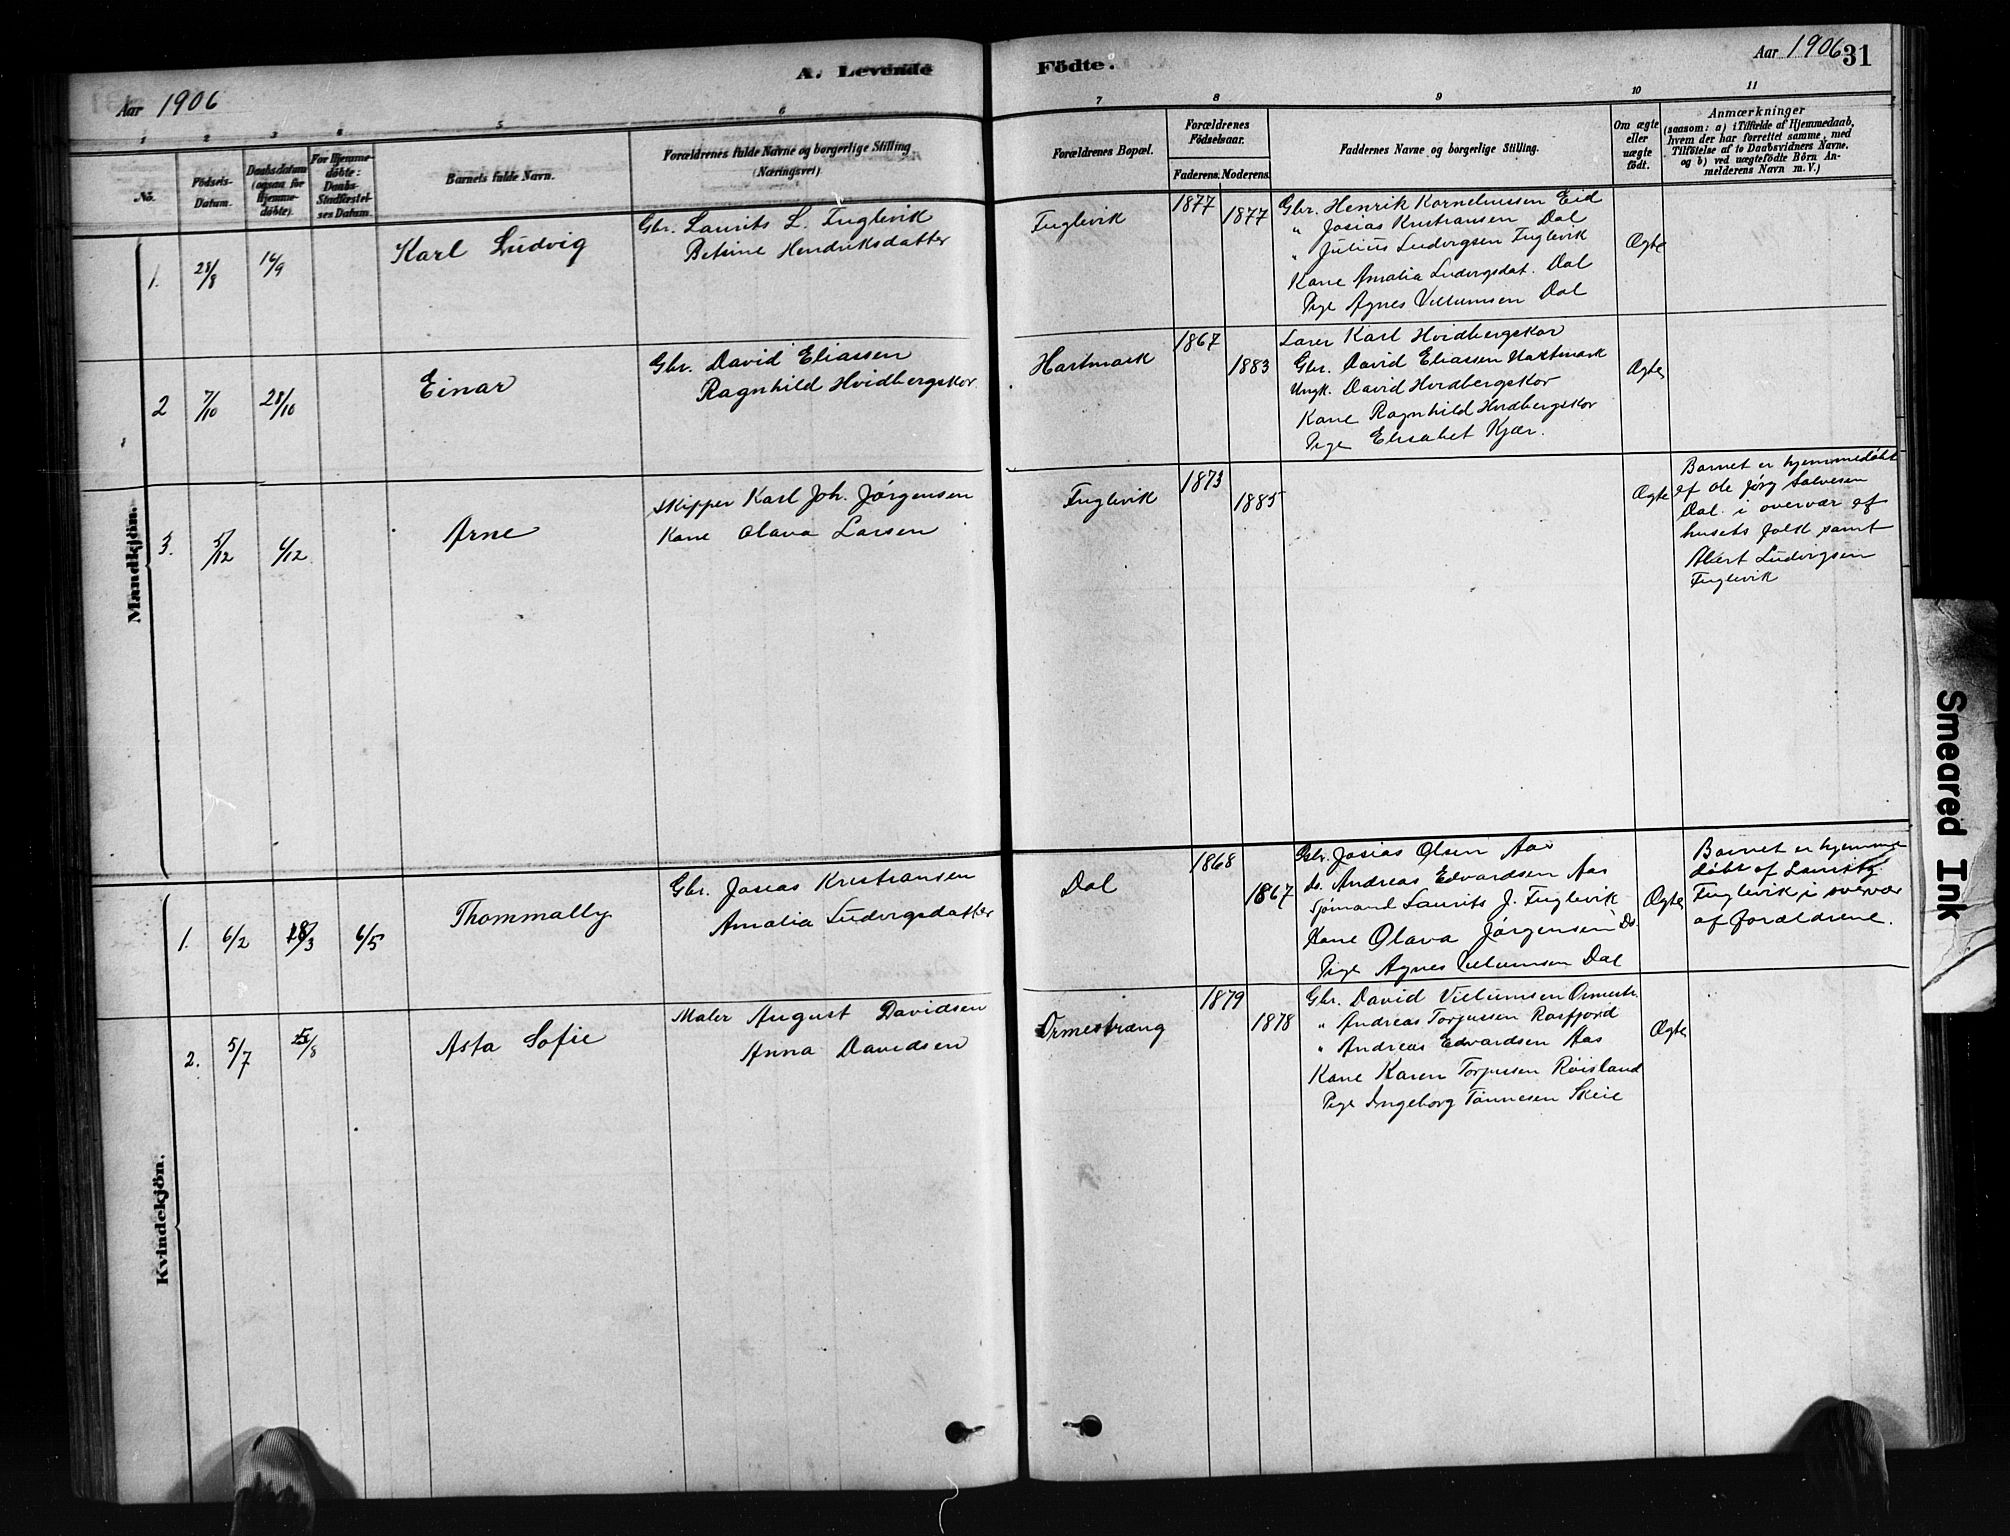 A. Levende Födte.
Aar 1906
Aar 1906 31
1 2 3 4 5 6 7 8 9 10 11
No.
Födsels-Datum.
Daabsdatum (ogsaa for Hjemmedøbte).
For Hjemmedöbte: Daabs-Stadfæstelses Datum
Barnets fulde Navn.
Forældrenes fulde Navne og borgerlige Stilling (Næringsvei).
Forældrenes Bopæl.
Forældrenes Födselsaar.
Faderens. Moderens.
Faddernes Navne og borgerlige Stilling.
Om ægte eller uægte födt.
Anmærkninger
(saasom: a) i Tilfælde af Hjemmedaab,
hvem der har forrettet samme, med
Tilföielse af to Daabsvidners Navne.
og b) ved uægtefödte Börn An-
melderens Navn m. V.)
Mandkjön.
1. 28/8 16/9 Karl Ludvig
Gbr. Laurits L. Fuglevik
Betsine Hendriksdatter
Fuglevik 1877 1877
Gbr. Henrik Korneliussen Eid
" Josias Kristiansen Dal
" Julius Ludvigsen Fuglevik
Kone Amalia Ludvigsdat. Dal
Pige Agnes Villumsen Dal
Ægte
2 7/10 28/10 Einar
Gbr. David Eliassen
Ragnhild Hvidbergskor
Hartmark 1867 1883
Lærer Karl Hvidbergskor
Gbr. David Eliassen Hartmark
Ungk. David Hvidbergskor
Kone Ragnhild Hvidbergskor
Pige Elisabet Kjær.
Ægte
3. 5/12 6/12 Arne
Skipper Karl Joh. Jørgensen
Kone Olava Larsen
Fuglevik 1873 1885
Ægte
Barnet er hjemmedøbt
af Ole Jørg Salvesen
Dal i overvær af
husets folk samt
Albert Ludvigsen
Fuglevik
Kvindekjön.
1. 6/2 18/3 6/5 Thommally
Gbr. Josias Kristiansen
Amalia Ludvigsdatter
Dal 1868 1867
Gbr. Josias Olsen Aas
ds. Andreas Edvardsen Aas
Sjømand Laurits J. Fuglevik
Kone Olava Jørgensen Ds.
Pige Agnes Villumsen Dal
Ægte
Barnet er hjemme
døbt af Laurits
Fuglevik i overvær
af forældrene.
2. 5/7 /8 Asta Sofie
Maler August Davidsen
Anna Davidsen
Ormestræng 1879 1878
Gbr. David Villumsen Ormestr.
" Andreas Torjussen Rosfjord
" Andreas Edvardsen Aas
Kone Karen Torjussen Røisland
Pige Ingeborg Tønnesen Skeie
Ægte
Smeared Ink